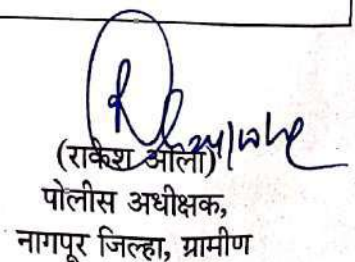 (राकेश ओला)
पोलीस अधीक्षक,
नागपूर जिल्हा, ग्रामीण